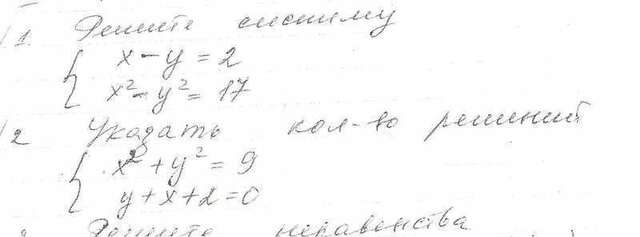 1. Решите систему
x - y = 2
x² - y² = 17
2 Указать кол-во решений
x² + y² = 9
y + x + 2 = 0
Решите неравенства